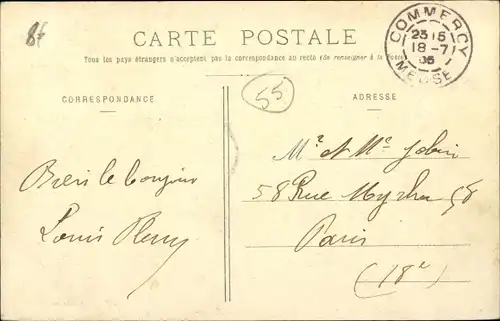 CARTE POSTALE
Tous les pays étrangers n'acceptent pas la correspondance au recto (Se renseigner à la Poste)
COMMERCY
23 15
18 -7
MEUSE
55
CORRESPONDANCE
ADRESSE
Mr et Me Jobin
Bien le bonjour
58 Rue Myrha 58
Louis
Paris
(18e)